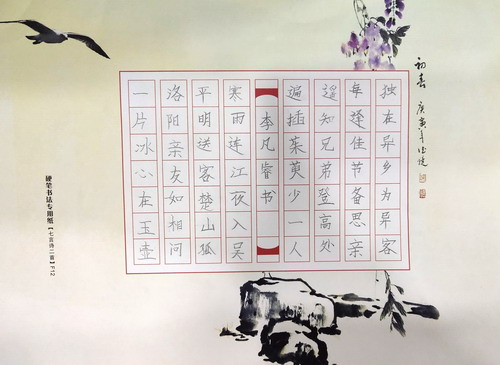 初春
庚寅年
独在异乡为异客
每逢佳节备思亲
遥知兄弟登高处
遍插茱萸少一人
李凡睿书
寒雨连江夜入吴
平明送客楚山孤
洛阳亲友如相问
一片冰心在玉壶
硬笔书法专用纸【七言诗二首】P12